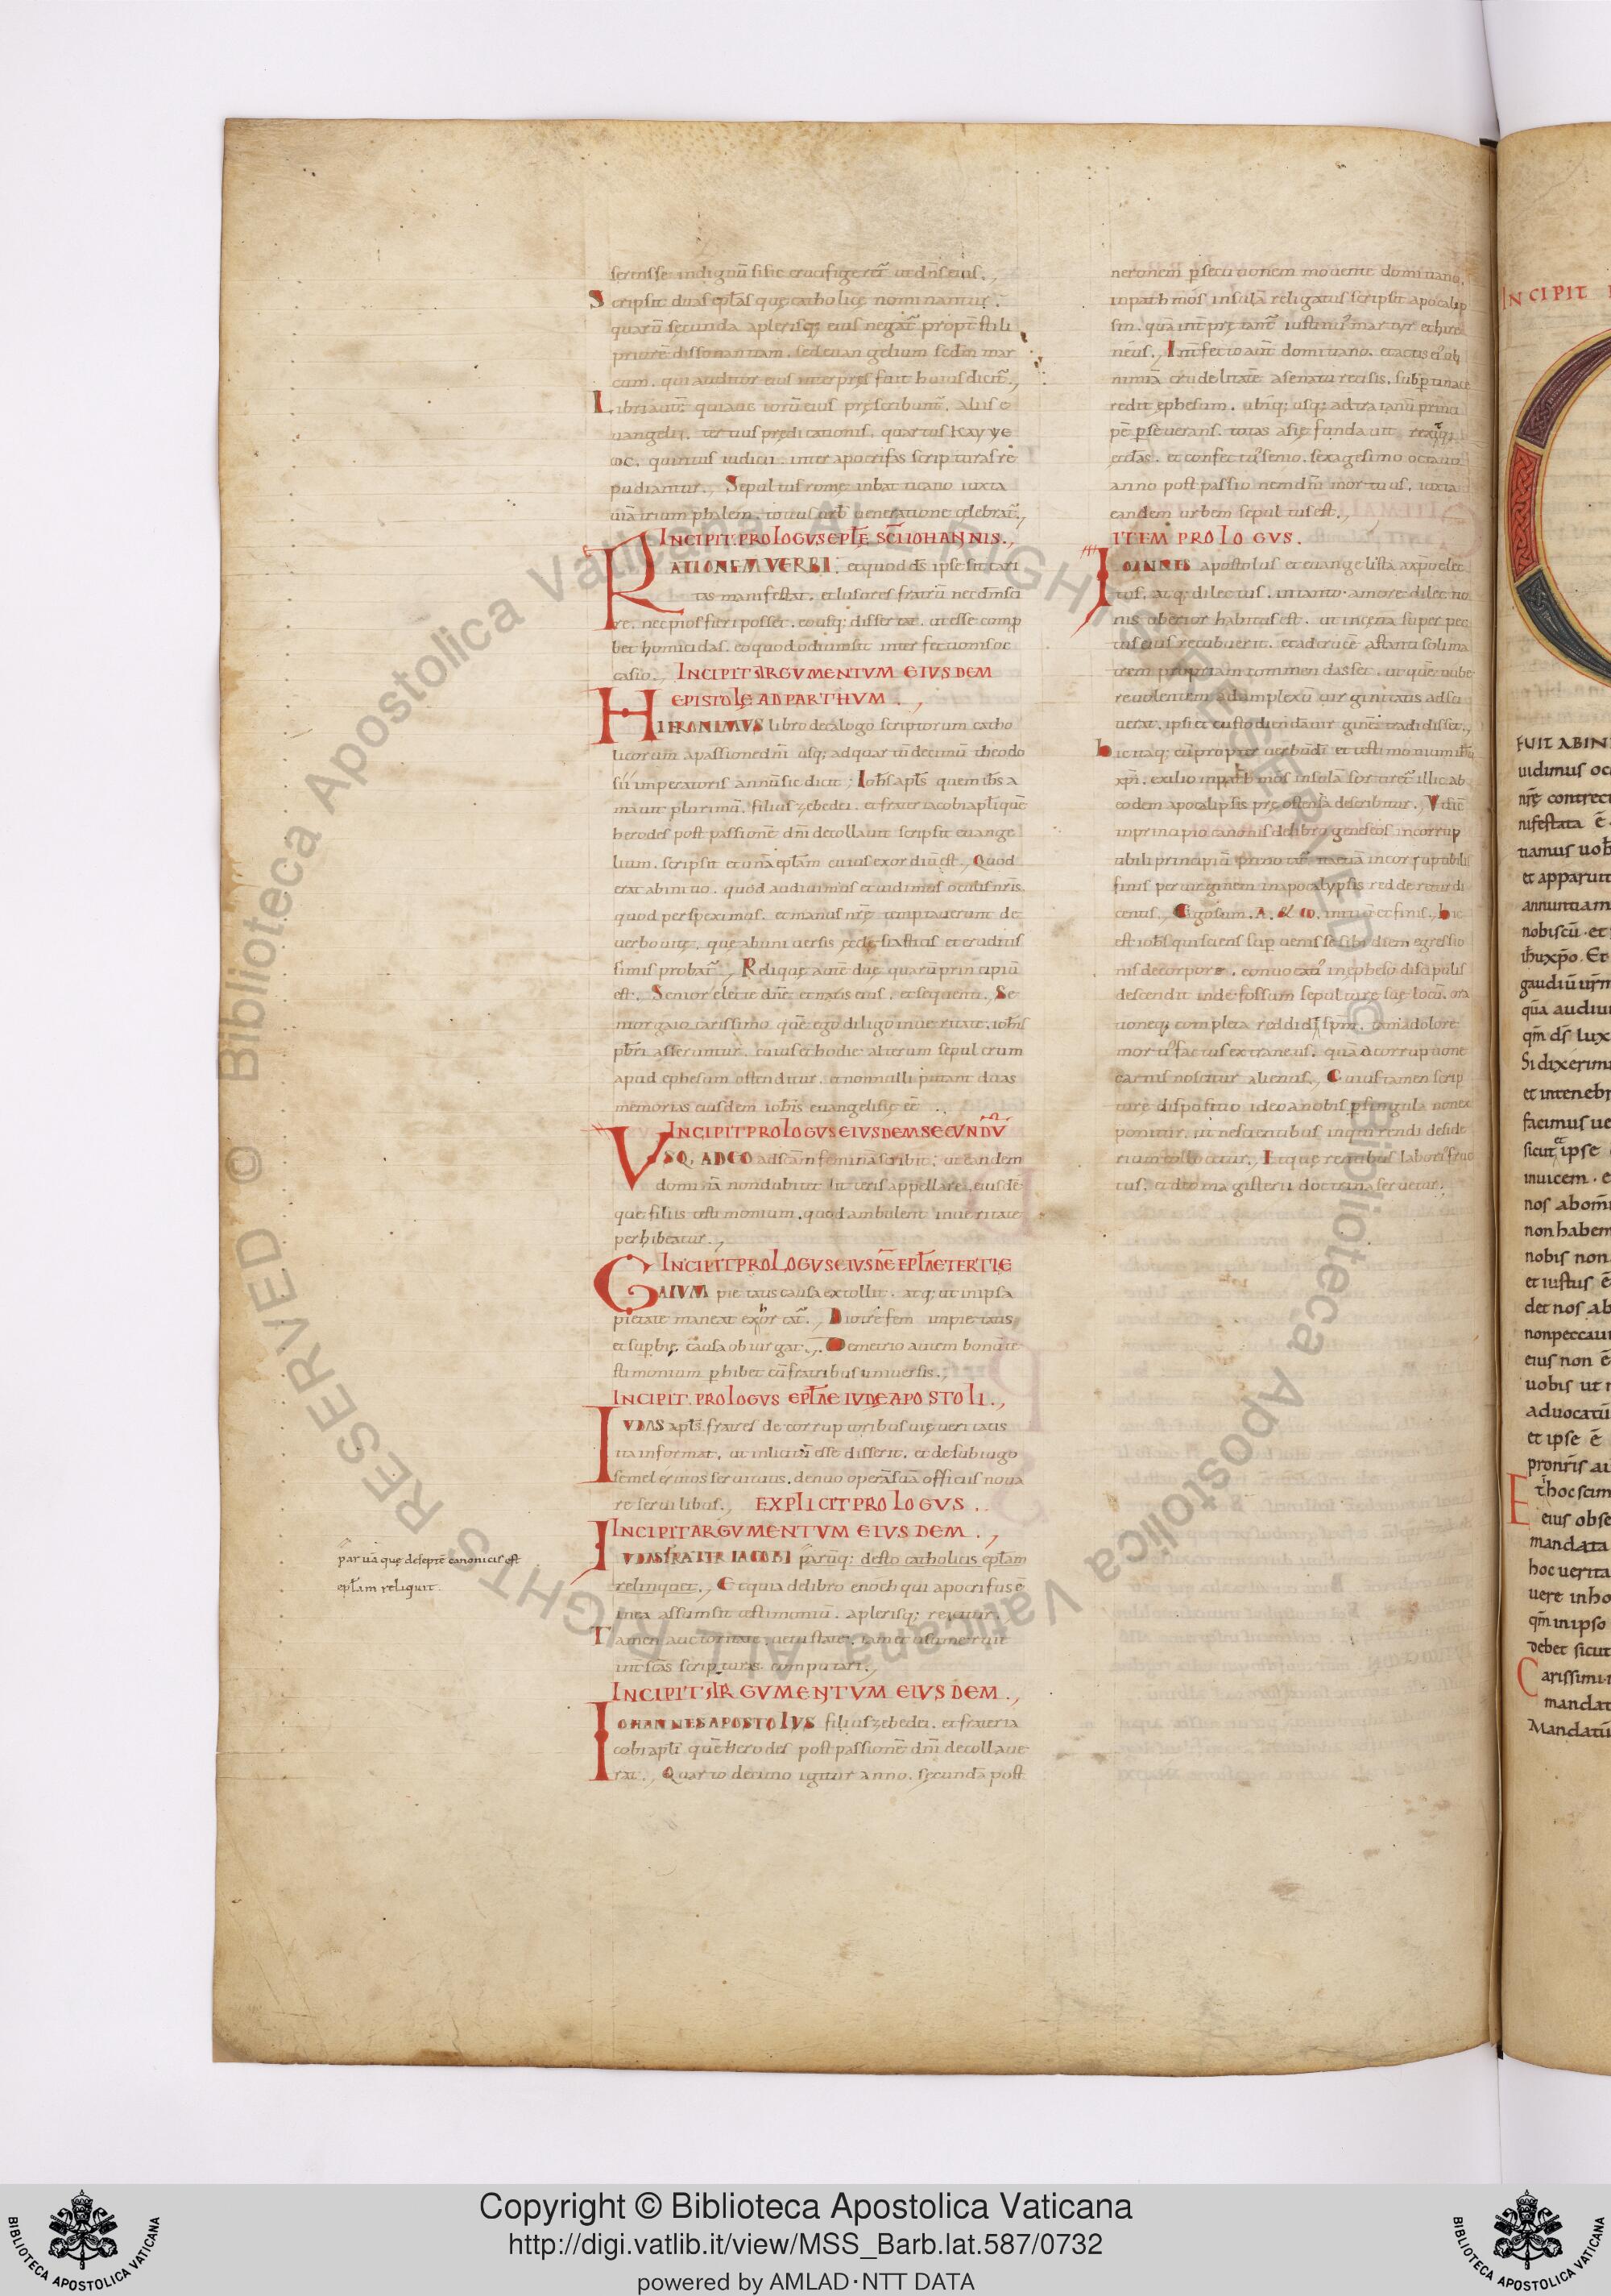 serens se indignū si sic crucifigeret᷑ ut dn̄s eius.,
Scripsit duas epl̄as quę catholicę nominantur.
quarū secunda a plerisq; eius negat᷑ propt̄ stili
priorē dissonantiam. sed euangelium secdm̄ mar
cum. qui auditor eius interpres fuit huius dicit᷑.,
Libri autē quia uc torū eius pręscribunt᷑. alius e
uangelii. tertius prędicationis. quartus
quintus iudicii. inter apocrifas scripturas re
pudiantur., Sepultus romę in baticano iuxta
uiā triumphalem. totius urb̄ ueneratione celebrat᷑.,
INCIPIT. PROLOGUS EPLĒ SC̄I IOHANNIS.,
RATIONEM VERBI. et quod ds̄ ipse sit cari
tas manifestat. et lusores fratrū nec dm̄ sci
re. nec pios fieri posset. eousq; dissertat. ut esse comp
bet homicidas. eo quod odium sit interfectionis oc
casio., INCIPIT ARGUMENTUM EIUSDEM
EPISTOLĘ AD PARTHUM.,
HIERONIMUS libro decalogo scriptorum catho
licorum a passione dn̄i usq; ad quartūdecimū theodo
sii imperatoris annū sic dicit; Ioh̄s apl̄s quem ih̄s a
mauit plurimū. filius zebedei. et frater iacobi apl̄i quē
herodes post passionē dn̄i decollauit scripsit euange
lium. scripsit et unā epl̄am cuius exordiū est., Quod
erat ab initio. quod audiuimus et uidimus oculis nr̄is.
quod perspeximus. et manus nr̄ę temptauerunt de
uerbo uitę. que ab uniuersis ęcclesiasticis et eruditis
simis probat᷑., Reliquę autē duę quarū principiū
est. Senior electe dn̄ę et natis eius. et sequenti. Se
nior gaio carissimo quē ego diligo in ueritate. ioh̄is
pb̄ri asseruntur. cuius et hodie alterum sepulcrum
apud ephesum ostenditur. et nonnulli putant duas
memorias eiusdem ioh̄is euangelistę eē.
INCIPIT PROLOGUS EIUSDEM SECUNDŪ
VSQ. ADEO ad sc̄am feminā scribit. ut eandem
dominā non dubitet litteris appellare. eiusdē
que filiis testimonium. quod ambulent in ueritate
perhibeatur.,
INCIPIT PROLOGUS EIUSDĒ EPL̄AE TERTIĘ
GAIUM pietatis causa extollit. atq; ut in ipsa
pietate maneat exhortat᷑., Diotrefem impietatis
et supbię causa obiurgat., Demetrio autem bonū te
stimonium phibet cū fratribus uniuersis.,
INCIPIT. PROLOGUS EPL̄AE IUDĘ APOSTOLI.,
IUDAS apl̄s fratres de corruptoribus uię ueritatis
ita informat. ut inlicitū esse disserit. et de sub iugo
semel ermos seruitutis. denuo operā suā officiis noua
re seruilibus., EXPLICIT PROLOGUS..
INCIPIT ARGUMENTUM EIUSDEM.,
IUDAS FRATER IACOBI paruq; de sto catholicis epl̄am
relinquit., Et quia de libro enoch qui apocrifus ē
in ea assumsit testimoniū. a plerisq; reicitur.
Tamen auctoritate. uetustate. iam et usu meruit
int̄ sc̄as scripturas computari.,
INCIPIT ARGUMENTUM EIUSDEM.,
IOHANNES APOSTOLUS filius zebedei. et frater ia
cobi apl̄i quē herodes post passionē dn̄i decollaue
rat., Quarto decimo igitur anno. secundā post
par uā que de septē canonicis est
epl̄am reliquit.
neronem psecutionem mouente domitiano.
in pathmos insulā religatus scripsit apocalip
sin. quā int̄prętant᷑ iustinus martyr et hire
neus., Int̄fecto aūt domitiano. et actis eius ob
nimiā crudelitatē a senatu recisis. sub ptinace
redit ephesum. ubiq; usq; ad traianū princi
pē pseuerans. totas asię fundauit rexitq;
eccl̄as. et confectus senio. sexagesimo octauo
anno post passionem dn̄i mortuus. iuxta
eandem urbem sepultus est.,
ITEM PROLOGUS.
IOANNES apostolus et euangelista a xp̄o elec
tus. atq; dilectus. in tanto amore dilectio
nis uberior habitus est. ut in cęna super pec
tus eius recubuerit. et ad crucē astanti soli ma
trem propriam commendasset. ut quē nube
re uolentem ad amplexū uirginitatis adsci
uerat. ipsi et custodiendā uirginē tradidisset.,
hic itaq; cū propter uerbū dī et testimonium ih̄u
xp̄i. exilio in pathmos insulā sortiret᷑ illic ab
eodem apocalipsis pręostensa describitur., Ut sic
in principio canonis de libro geneseos incorrup
tibili principiū
finis per uirginem in apocalypsis redderetur di
centis., Ego sum. A. & ω. initiū et finis., hic
est ioh̄s qui sciens supuenisse sibi diem egressio
nis de corpore. conuocatis in ępheso discipulis
descendit in defossum sepulturę suę locū. ora
tioneq; completa reddidit spm̄. tam a dolore
mortis factus extraneus. quā a corruptione
carnis noscitur alienus., Cuius tamen scrip
turę dispositio ideo a nobis p singula non ex
ponitur. ut nescientibus inquirendi deside
rium collocetur., Et quęrentibus laboris fruc
tus. et deo magisterii doctrina seruetur.
INCIPIT
FUIT AB INI
uidimus oc
nr̄ę contrect
nifestata ē
tiamus uob̄
et apparuit
annuntiam
nobiscū. et
ih̄u xp̄o. Et
gaudiū ur̄m
quā audiui
qm̄ ds̄ lux
Si dixerim
et in tenebr
facimus ue
sicut et ipse
inuicem. e
nos ab om̄i
non habem
nobis non
et iustus ē
det nos ab
non peccaui
eius non ē
uobis ut n
aduocatū
et ipse ē
pro nr̄is au
Et hoc scim
eius obse
mandata
hoc uerita
uere in ho
qm̄ in ipso
debet sicut
Carissimi.
mandat
Mandatū
Copyright © Biblioteca Apostolica Vaticana
http://digi.vatlib.it/view/MSS_Barb.lat.587/0732
powered by AMLAD·NTT DATA
BIBLIOTECA APOSTOLICA VATICANA
BIBLIOTECA APOSTOLICA VATICANA
© Biblioteca Apostolica Vaticana ALL RIGHTS RESERVED
© Biblioteca Apostolica Vaticana ALL RIGHTS RESERVED